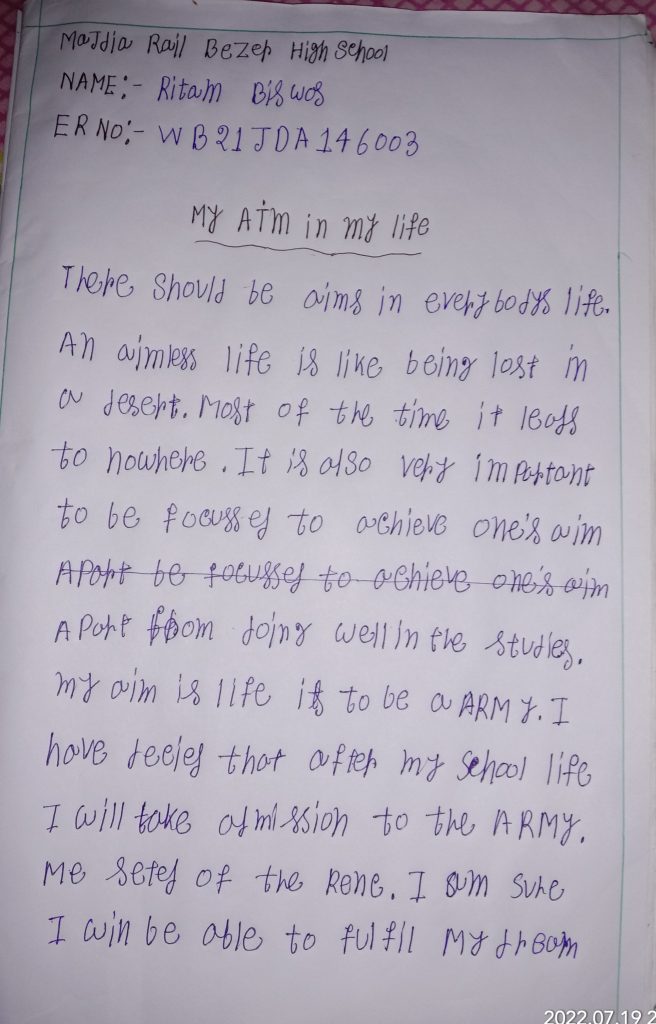 Majdia Rail Bezer High School
NAME:- Ritam Biswos
ER NO:- WB21JDA146003
My AIm in my life
There should be aims in everybodys life.
An aimless life is like being lost in
a desert. Most of the time it leads
to nowhere. It is also very important
to be focussed to achieve one's aim
Apart be focussed to achieve one's aim
Apart from doing well in the studies.
my aim is life is to be a ARMY. I
have that after my school life
I will take admission to the ARMY.
Me of the Rene. I am sure
I win be able to fulfll My dream
2022.07.19 2